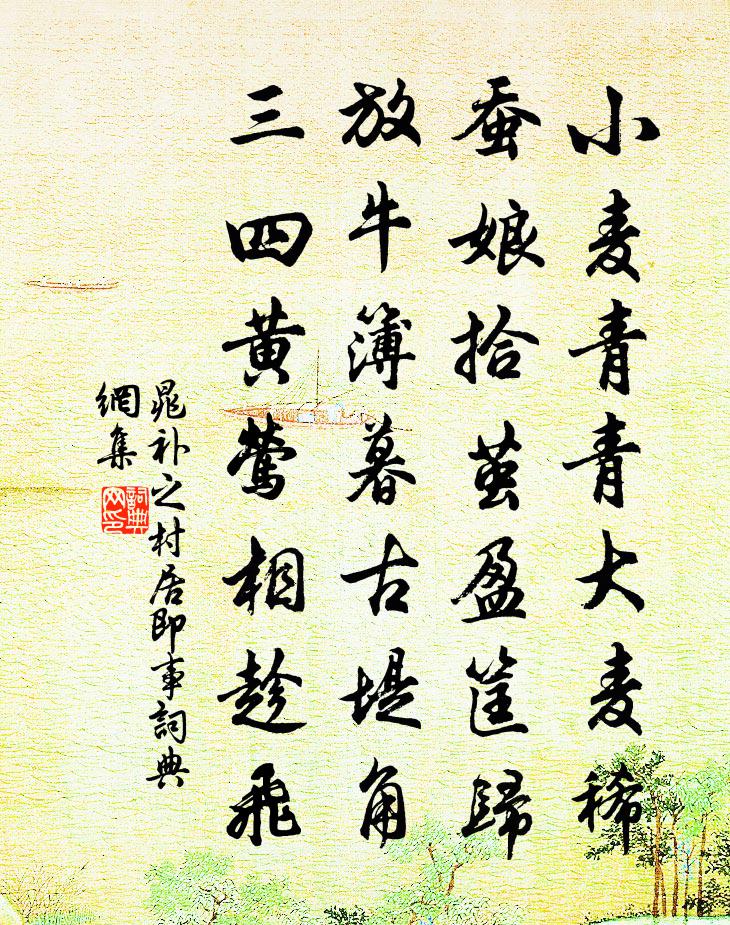 小麦青青大麦稀
蚕娘拾茧盈筐歸
放牛簿暮古堤角
三四黄莺相趁飛
晁补之村居即事詞典
網集
詞典
网印